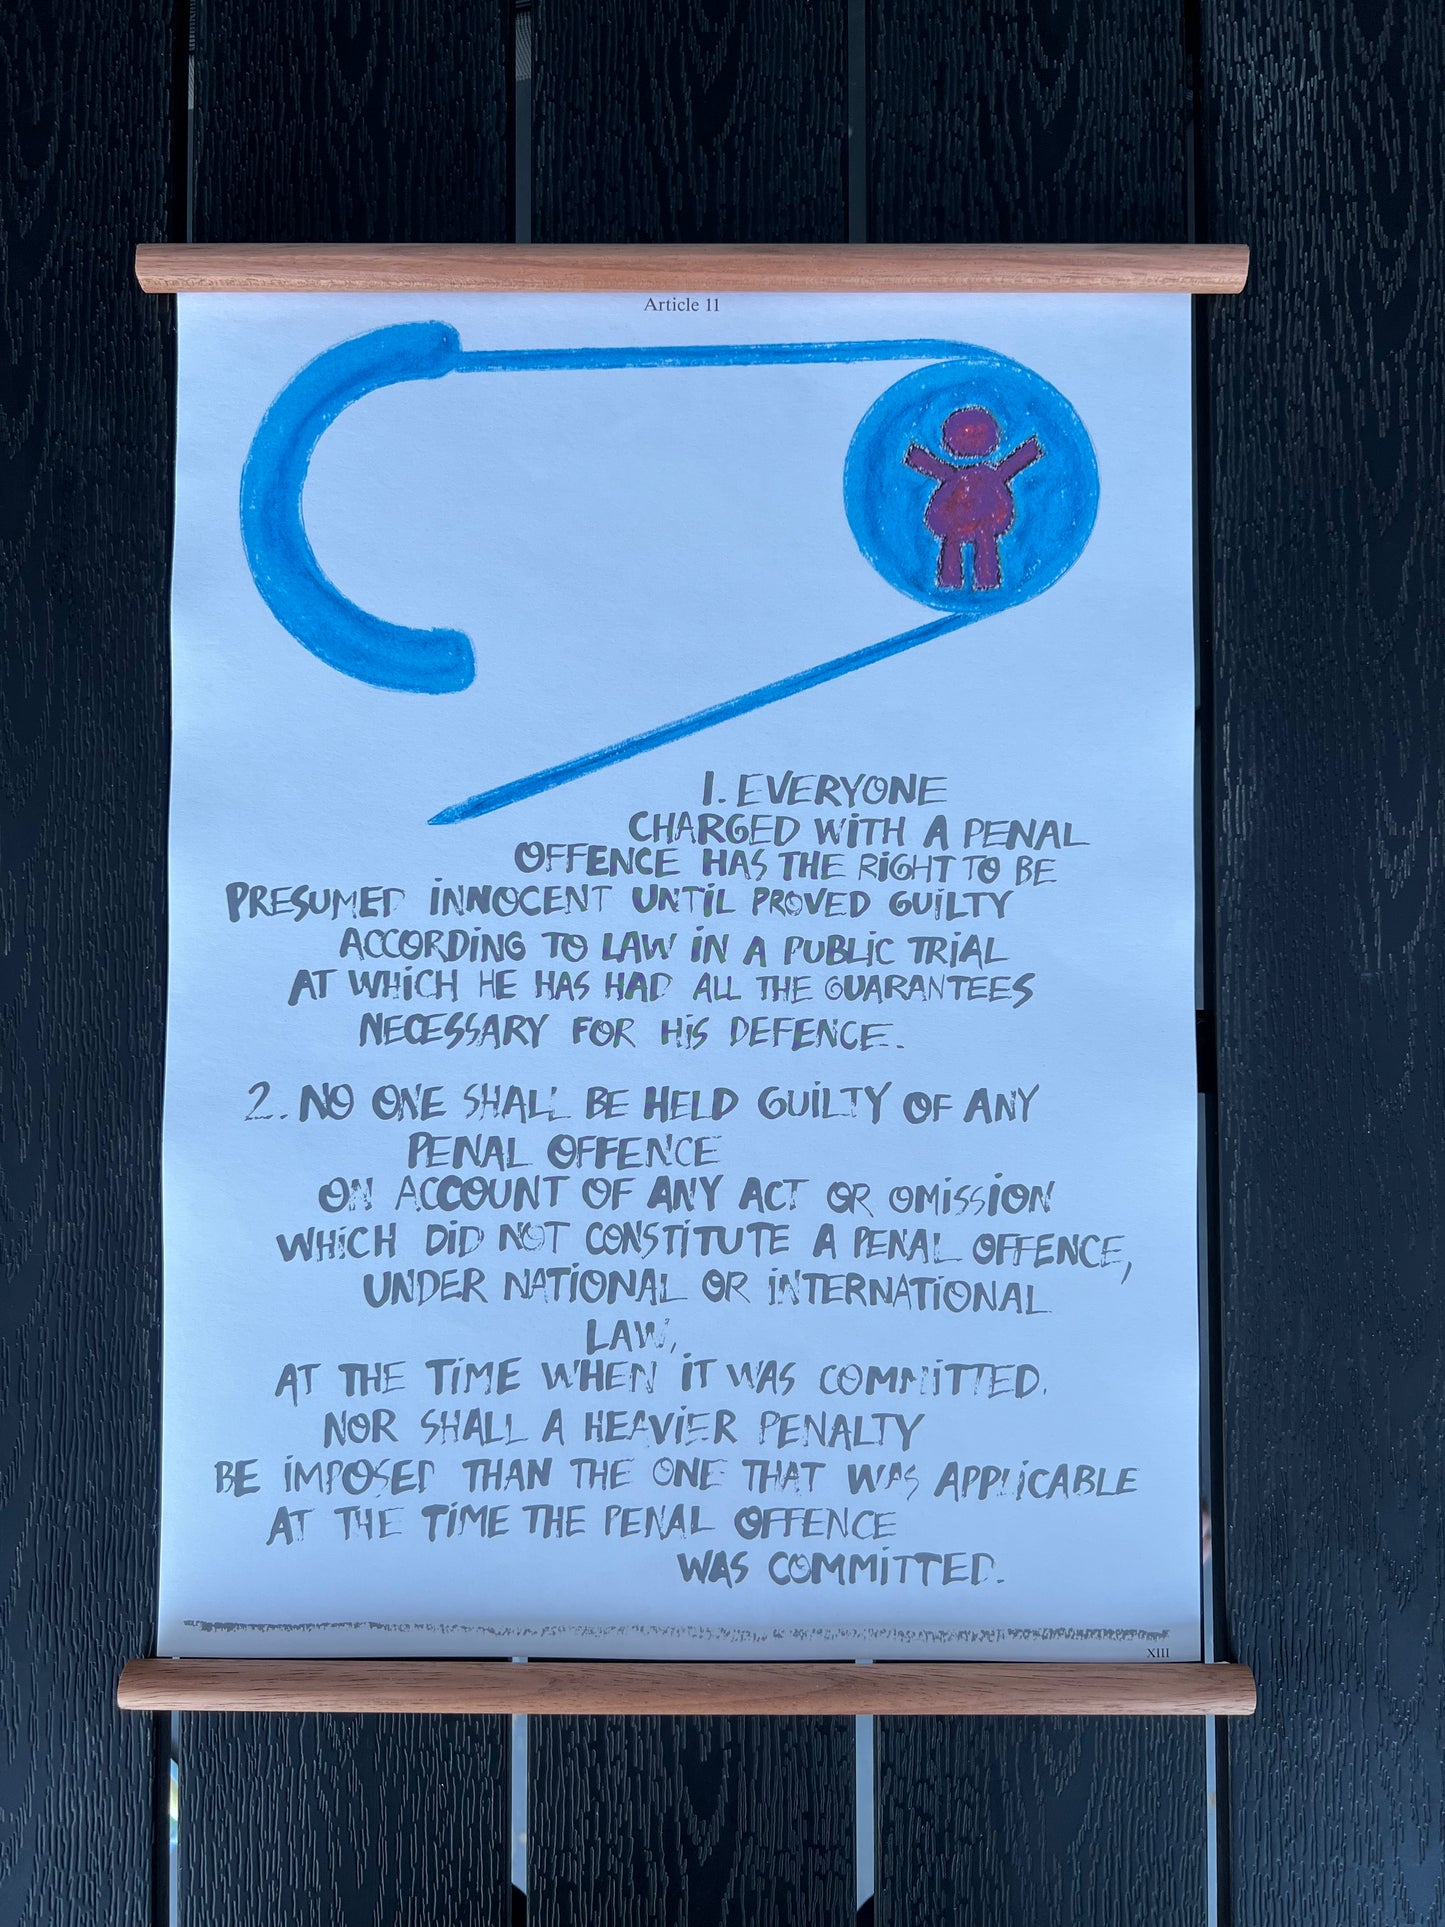 Article 11
1. EVERYONE
CHARGED WITH A PENAL
OFFENCE HAS THE RIGHT TO BE
PRESUMED INNOCENT UNTIL PROVED GUILTY
ACCORDING TO LAW IN A PUBLIC TRIAL
AT WHICH HE HAS HAD ALL THE GUARANTEES
NECESSARY FOR HIS DEFENCE.
2. NO ONE SHALL BE HELD GUILTY OF ANY
PENAL OFFENCE
ON ACCOUNT OF ANY ACT OR OMISSION
WHICH DID NOT CONSTITUTE A PENAL OFFENCE,
UNDER NATIONAL OR INTERNATIONAL
LAW,
AT THE TIME WHEN IT WAS COMMITTED.
NOR SHALL A HEAVIER PENALTY
BE IMPOSED THAN THE ONE THAT WAS APPLICABLE
AT THE TIME THE PENAL OFFENCE
WAS COMMITTED.
XIII